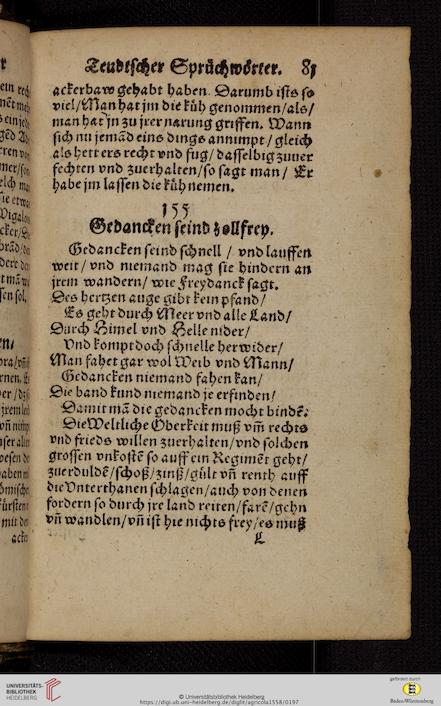 Teudtscher Sprüchwörter. 81
ackerbaw gehabt haben. Darumb ists so
viel/Man hat jm die küh genommen/als/
man hat jn zu jrer narung griffen. Wann
sich nu jemād eins dings annimpt/gleich
als hett ers recht vnd fug/dasselbig zuuer
fechten vnd zuerhalten/so sagt man/ Er
habe jm lassen die küh nemen.
155
Gedancken seind zollfrey.
Gedancken seind schnell / vnd lauffen
weit/vnd niemand mag sie hindern an
jrem wandern/wie Freydanck sagt.
Des hertzen auge gibt kein pfand/
Es geht durch Meer vnd alle Land/
Durch Himel vnd Helle nider/
Vnd kompt doch schnelle her wider/
Man fahet gar wol Weib vnd Mann/
Gedancken niemand fahen kan/
Die band kund niemand je erfinden/
Damit mā die gedancken mocht bindē.
Die Weltliche Oberkeit muß vm̄ rechts
vnd frieds willen zuerhalten/vnd solchen
grossen vnkostē so auff ein Regimēt geht/
zuerduldē/schoß/zinß/gült vn̄ renth auff
die Vnterthanen schlagen/auch von denen
fordern so durch jre land reiten/farē/gehn
vn̄ wandlen/vn̄ ist hie nichts frey/es muß
L
acke
UNIVERSITÄTS-
BIBLIOTHEK
HEIDELBERG
© Universitätsbibliothek Heidelberg
https://digi.ub.uni-heidelberg.de/diglit/agricola1558/0197
gefördert durch
Baden-Württemberg